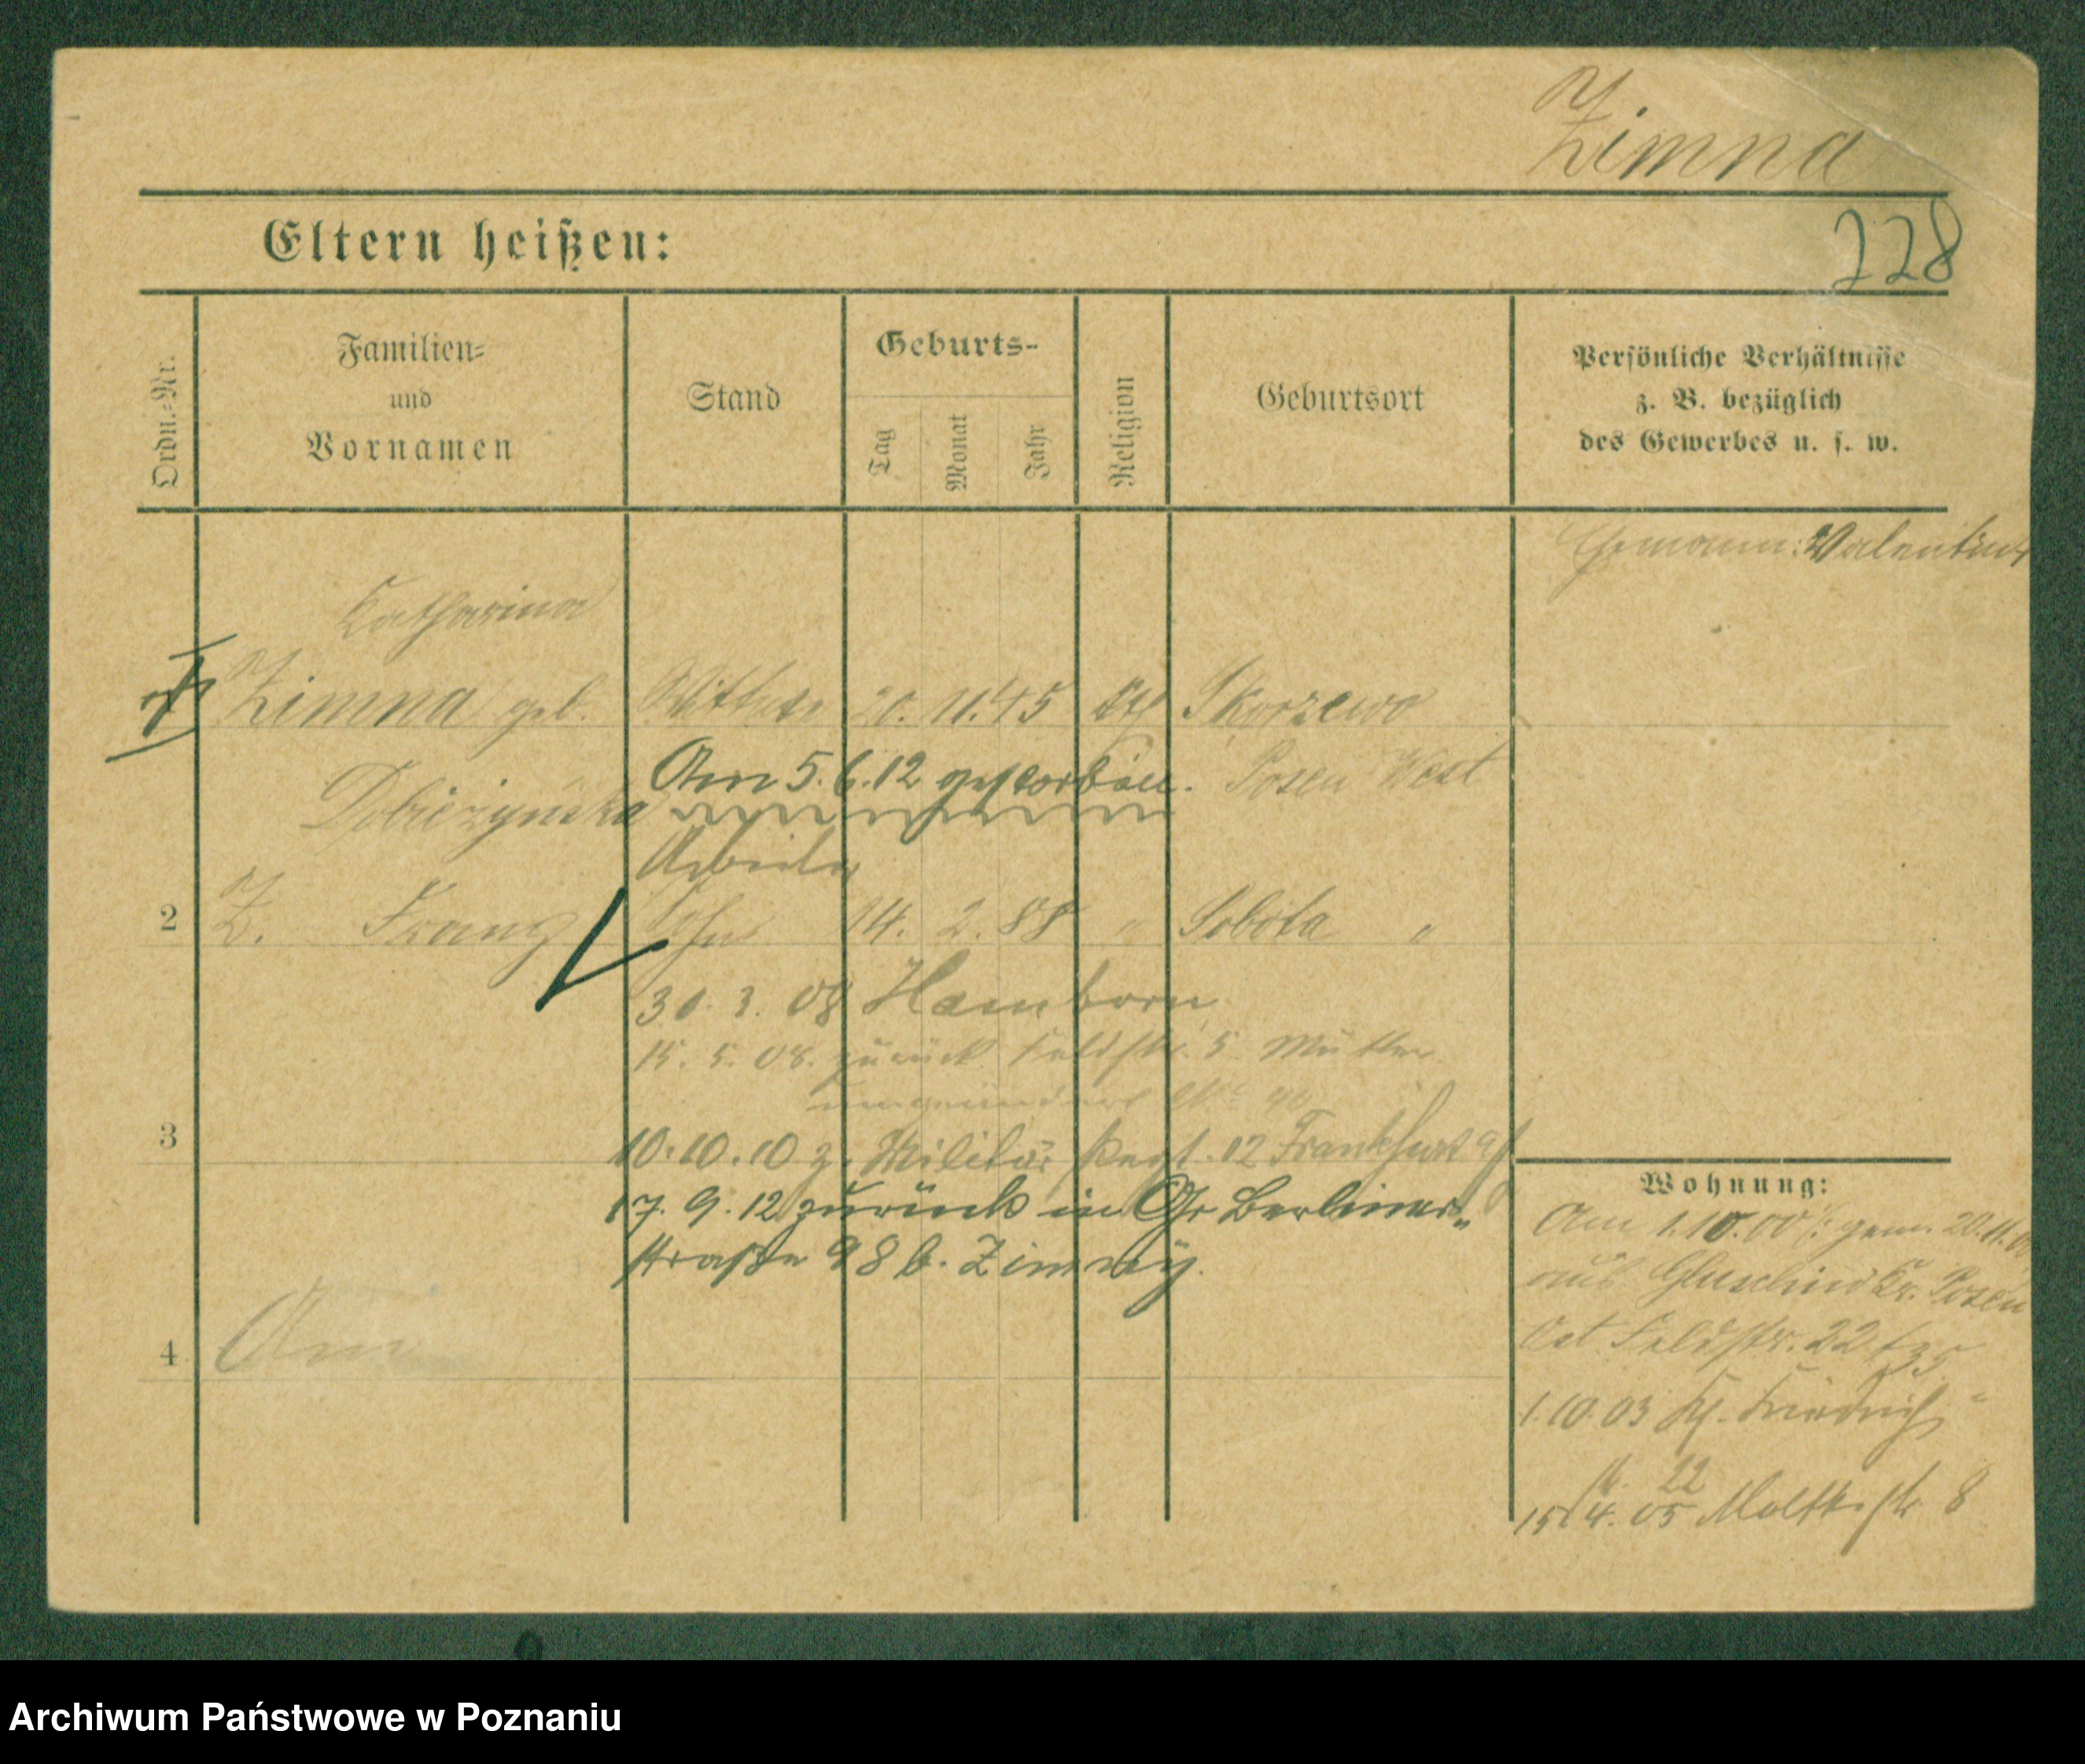 Zimna
228
Eltern heißen:
Ordn.-Nr.
Familien-
und
Vornamen
Stand
Geburts-
Tag
Monat
Jahr
Religion
Geburtsort
Persönliche Verhältnisse
z. B. bezüglich
des Gewerbes u. s. w.
Ehemann: Valentin
Katharina
Zimna geb. 20. 11. 45 kth Skorzewo
Am 5. 6. 12 gestorben. Posen West
Arbeiter
2 Z. Franz Sohn 14. 2. 88 " Sobota "
30. 3. 08 Hamborn
15. 5. 08. zurück Feldstr. 5 Mutter
3
10. 10. 10 z. Militär Regt. 12 Frankfurt
17. 9. 12 zurück in Gr Berliner-
straße 98 b. Zimny.
Wohnung:
Am 1. 10. 00 gem. 20. 11. 00
aus Kr. Posen
Ost Feldstr. 22
1. 10. 03 Friedrich
str. 22
15. 4. 05 Moltkestr 8
4 Am
Archiwum Państwowe w Poznaniu